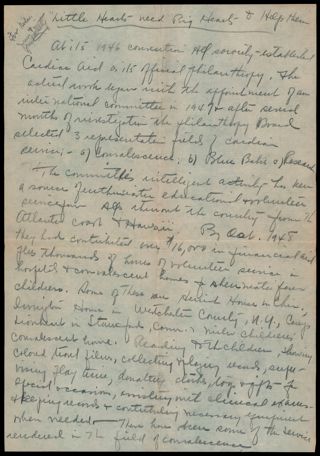 Little Hearts need Big Hearts to Help them
At its 1946 convention sorority established
Cardiac Aid as its official philanthropy. The
actual work began with the appointment of an
national committee in 1947 & after several
months of investigation the philanthropy Board
selected 3 representative fields, cardiac
service; - a) convalescence; b) Blue Babies c) Research
The committee's intelligent activity has been
a source of educational & volunteer
service for throughout the country from the
Atlantic coast to Hawaii. By Oct. 1948
they had contributed over $16,000 in financial aid
plus thousands of hours of volunteer service in
hospitals & convalescent homes
children. Some of these are Home in
Home in Westchester County, N.Y., Camp
in Stamford, Conn. children's
convalescent home. Reading to children, showing
colored films, collecting records, super-
vising play time, donating clothes, toys & gifts for
special occasions, assisting with clinical exams
& keeping records & contributing necessary equipment
when needed - These have been some of the services
rendered in the field of convalescence